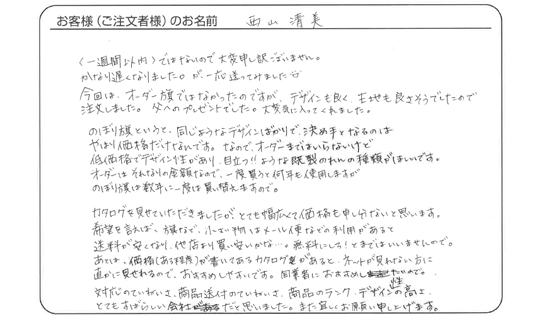 お客様（ご注文者様）のお名前 西山 清美
（一週間以内）ではないので大変申し訳ございません。
かなり遅くなりました。が、一応送ってみました
今回は、オーダー旗ではなかったのですが、デザインも良く、生地も良さそうでしたので
注文しました。父へのプレゼントでした。大変気に入ってくれました。
のぼり旗というと、同じようなデザインばかりで、決め手となるのは
やはり価格だけなんです。なので、オーダーまではいらないけど
低価格でデザイン性があり、目立つ!!ような既製のれんの種類がほしいです。
オーダーはそれなりの金額なので、一度買うと何年も使用しますが
のぼり旗は数年に一度は買い替えますので。
カタログを見せていただきましたが、とても幅広くて価格も申し分ないと思います。
希望を言えば、旗など、小さい物はメール便などの利用があると
送料が安くなり、他店より買い安いかな…。無料にしろ!とまではいいませんので。
あとは、価格（ある程度）が書いてあるカタログがあると、ネットが見れない方に
直かに見せれるので、おすすめしやすいです。同業者におすすめしたいので。
対応のていねいさ、商品送付のていねいさ、商品のランク、デザイン性の高さ、
とてもすばらしい会社だと思いました。また宜しくお願い申し上げます。